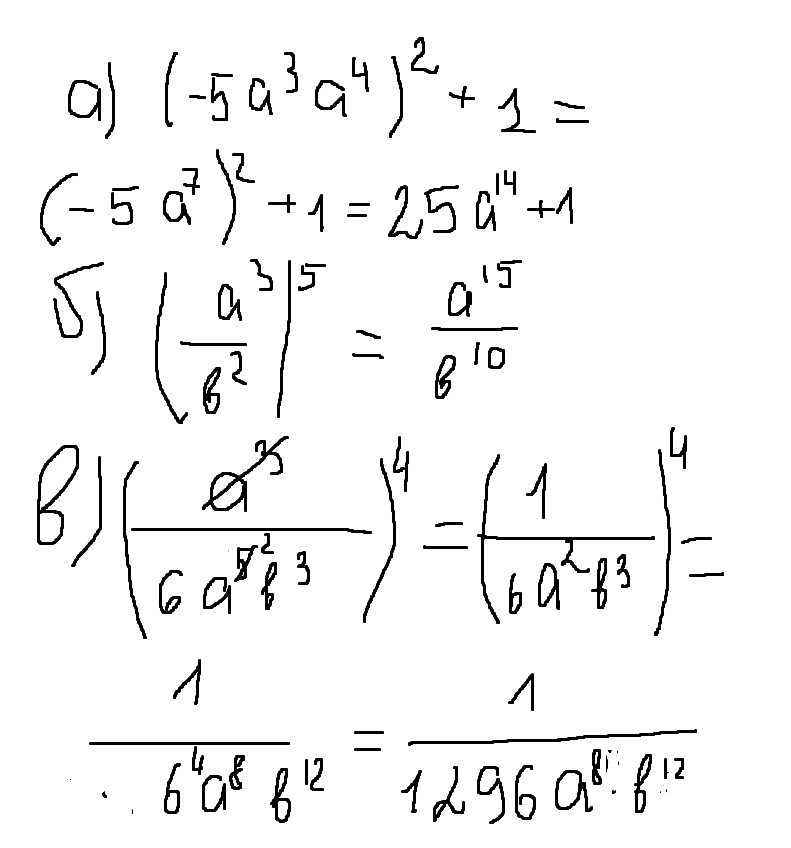 а) (-5a³a⁴)² + 1 =
(-5a⁷)² + 1 = 25a¹⁴ + 1
б) (a³/в²)⁵ = a¹⁵/в¹⁰
в) (a³/6a⁵²в³)⁴ = (1/6a²в³)⁴ =
1/6⁴a⁸в¹² = 1/1296a⁸в¹²